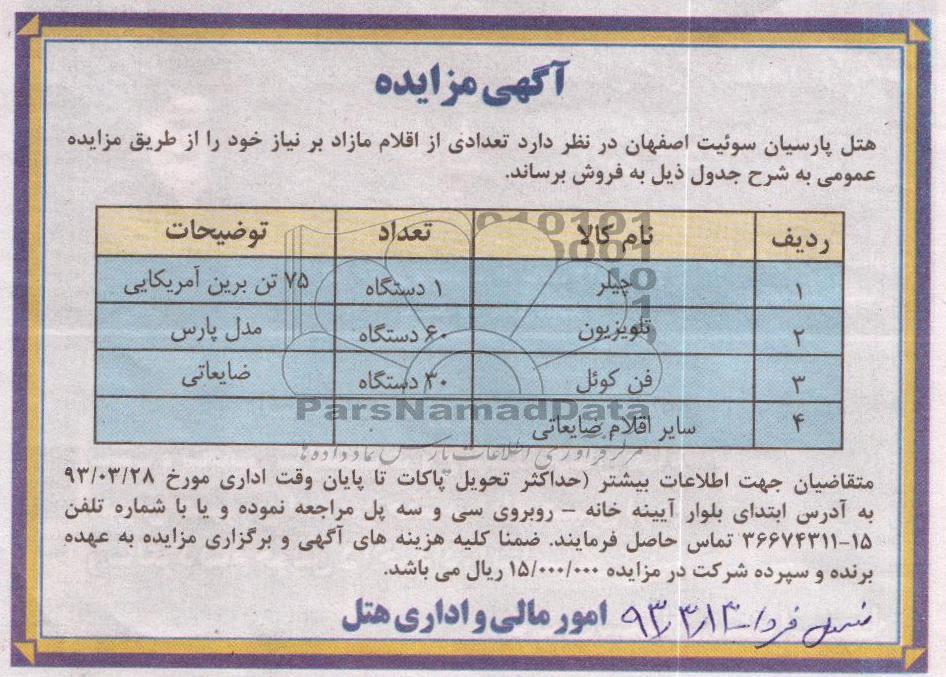 آگهی مزایده
هتل پارسیان سوئیت اصفهان در نظر دارد تعدادی از اقلام مازاد بر نیاز خود را از طریق مزایده
عمومی به شرح جدول ذیل به فروش برساند.
ردیف نام کالا تعداد توضیحات
۱ چیلر ۱ دستگاه ۷۵ تن برین آمریکایی
۲ تلویزیون ۶۰ دستگاه مدل پارس
۳ فن کوئل ۳۰ دستگاه ضایعاتی
۴ سایر اقلام ضایعاتی
ParsNamadData
مرکز فرآوری اطلاعات پارس نماد داده ها
متقاضیان جهت اطلاعات بیشتر (حداکثر تحویل پاکات تا پایان وقت اداری مورخ ۹۳/۰۳/۲۸
به آدرس ابتدای بلوار آیینه خانه – روبروی سی و سه پل مراجعه نموده و یا با شماره تلفن
۳۶۶۷۴۳۱۱-۱۵ تماس حاصل فرمایند. ضمنا کلیه هزینه های آگهی و برگزاری مزایده به عهده
برنده و سپرده شرکت در مزایده ۱۵/۰۰۰/۰۰۰ ریال می باشد.
امور مالی و اداری هتل